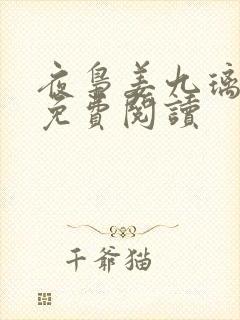 夜鳥姜九璃
免費閱讀
千爺猫